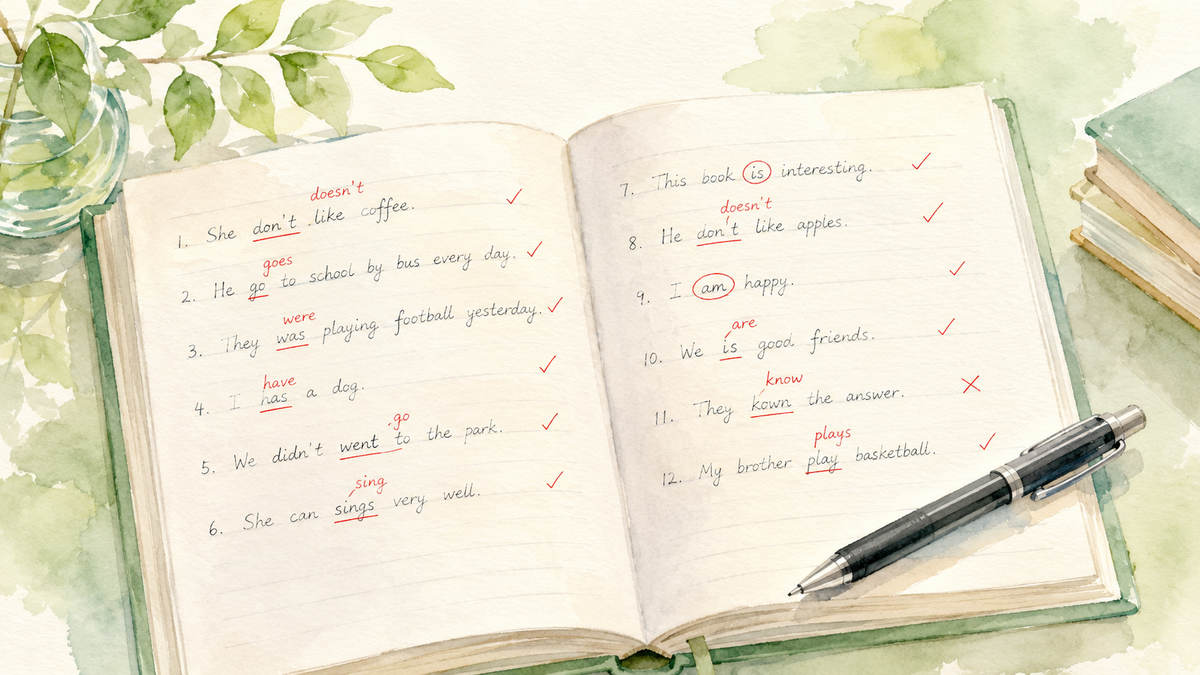 doesn't
1. She don't like coffee. ✓
goes
2. He go to school by bus every day. ✓
were
3. They was playing football yesterday. ✓
have
4. I has a dog. ✓
go
5. We didn't went to the park. ✓
sing
6. She can sings very well. ✓
7. This book is interesting. ✓
doesn't
8. He don't like apples. ✓
9. I am happy. ✓
are
10. We is good friends. ✓
know
11. They kown the answer. ✗
plays
12. My brother play basketball. ✓